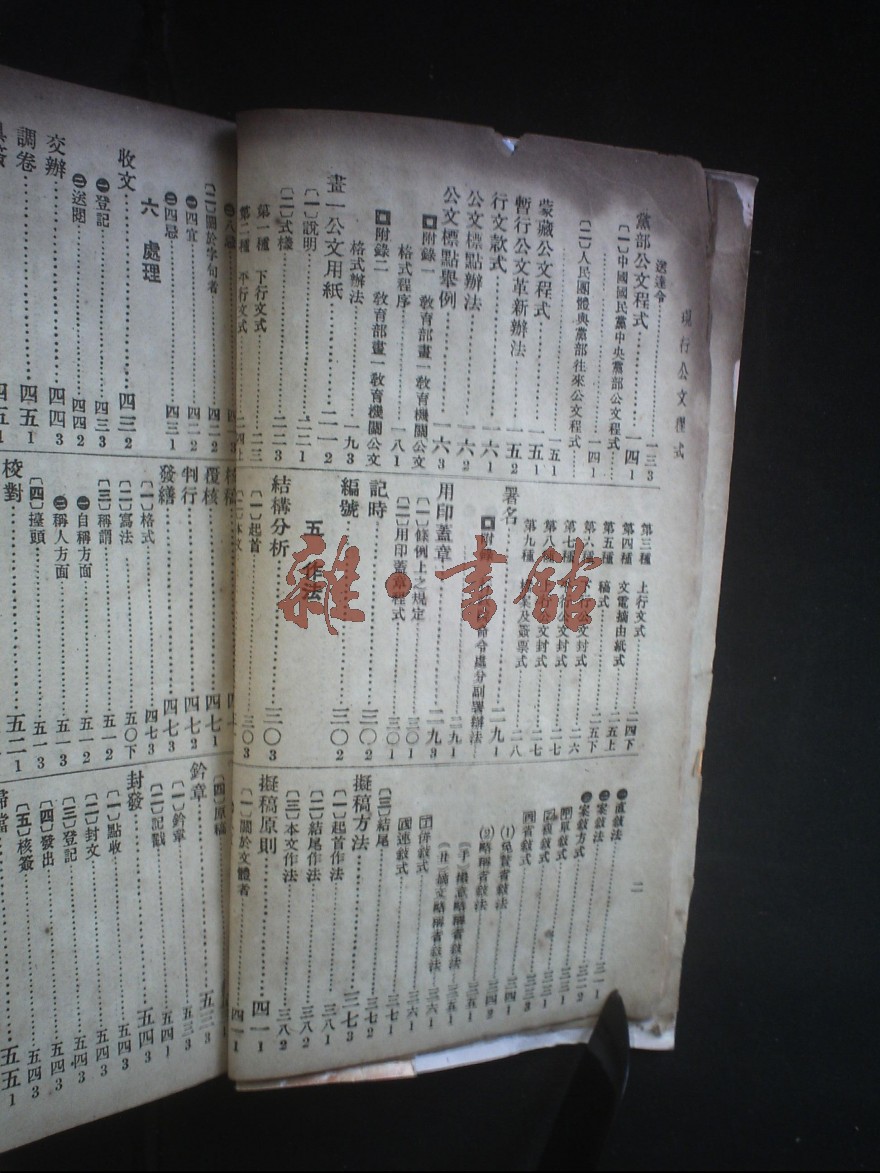 現行公文程式
二
送達令……一三3
黨部公文程式……一四1
〔一〕中國國民黨中央黨部公文程式……一四1
〔二〕人民團體與黨部往來公文程式……一五1
蒙藏公文程式……一五1
暫行公文革新辦法……一五2
行文款式……一六1
公文標點辦法……一六2
公文標點舉例……一六3
附錄一 教育部畫一教育機關公文
格式程序……一八1
附錄二 教育部畫一教育機關公文
格式辦法……一九3
畫一公文用紙……二一2
〔一〕說明……二二1
〔二〕式樣……二二3
第一種 下行文式……二三
第二種 平行文式……二四上
第三種 上行文式……二四下
第四種 文電摘由紙式……二五上
第五種 稿式……二五下
第六種
第七種
第八種
第九種
署名……二九1
用印蓋章……二九3
〔一〕條例上之規定……三〇1
〔二〕用印蓋章程式……三〇1
記時……三〇2
編號……三〇2
五 作法
結構分析……三〇3
〔一〕起首……三〇3
〔二〕本文
直敍法……三一1
案敍法
案敍方式
單敍式……三三1
複敍式
省敍式……三三3
(1)免贅省敍法……三四1
(2)略稱省敍法……三四2
(子)撮意略稱省敍法……三五1
(丑)摘文略稱省敍法……三六1
併敍式……三六1
速敍式……三七1
〔三〕結尾……三七2
擬稿方法……三七3
〔一〕起首作法……三八1
〔二〕結尾作法……三八2
〔三〕本文作法……三八2
擬稿原則……四一1
〔一〕關於文體者……四一1
〔二〕關於字句者……四二2
四宜……四二2
四忌……四三1
六 處理
收文……四三2
登記……四三3
送閱……四四2
交辦……四四3
調卷……四五1
四五1
核稿
覆核……四七1
判行……四七2
發繕……四七3
〔一〕格式……四七3
〔二〕寫法……五〇下
〔三〕稱謂……五一2
自稱方面……五一2
稱人方面……五一3
〔四〕擡頭……五一3
校對……五二1
〔四〕原稿
鈐章……五三3
〔一〕鈐章……五三3
〔二〕記戳……五四1
封發……五四3
〔一〕點收……五四3
〔二〕封文……五四3
〔三〕登記……五四3
〔四〕發出……五四3
〔五〕核簽……五四3
歸檔……五五1
雜·書館